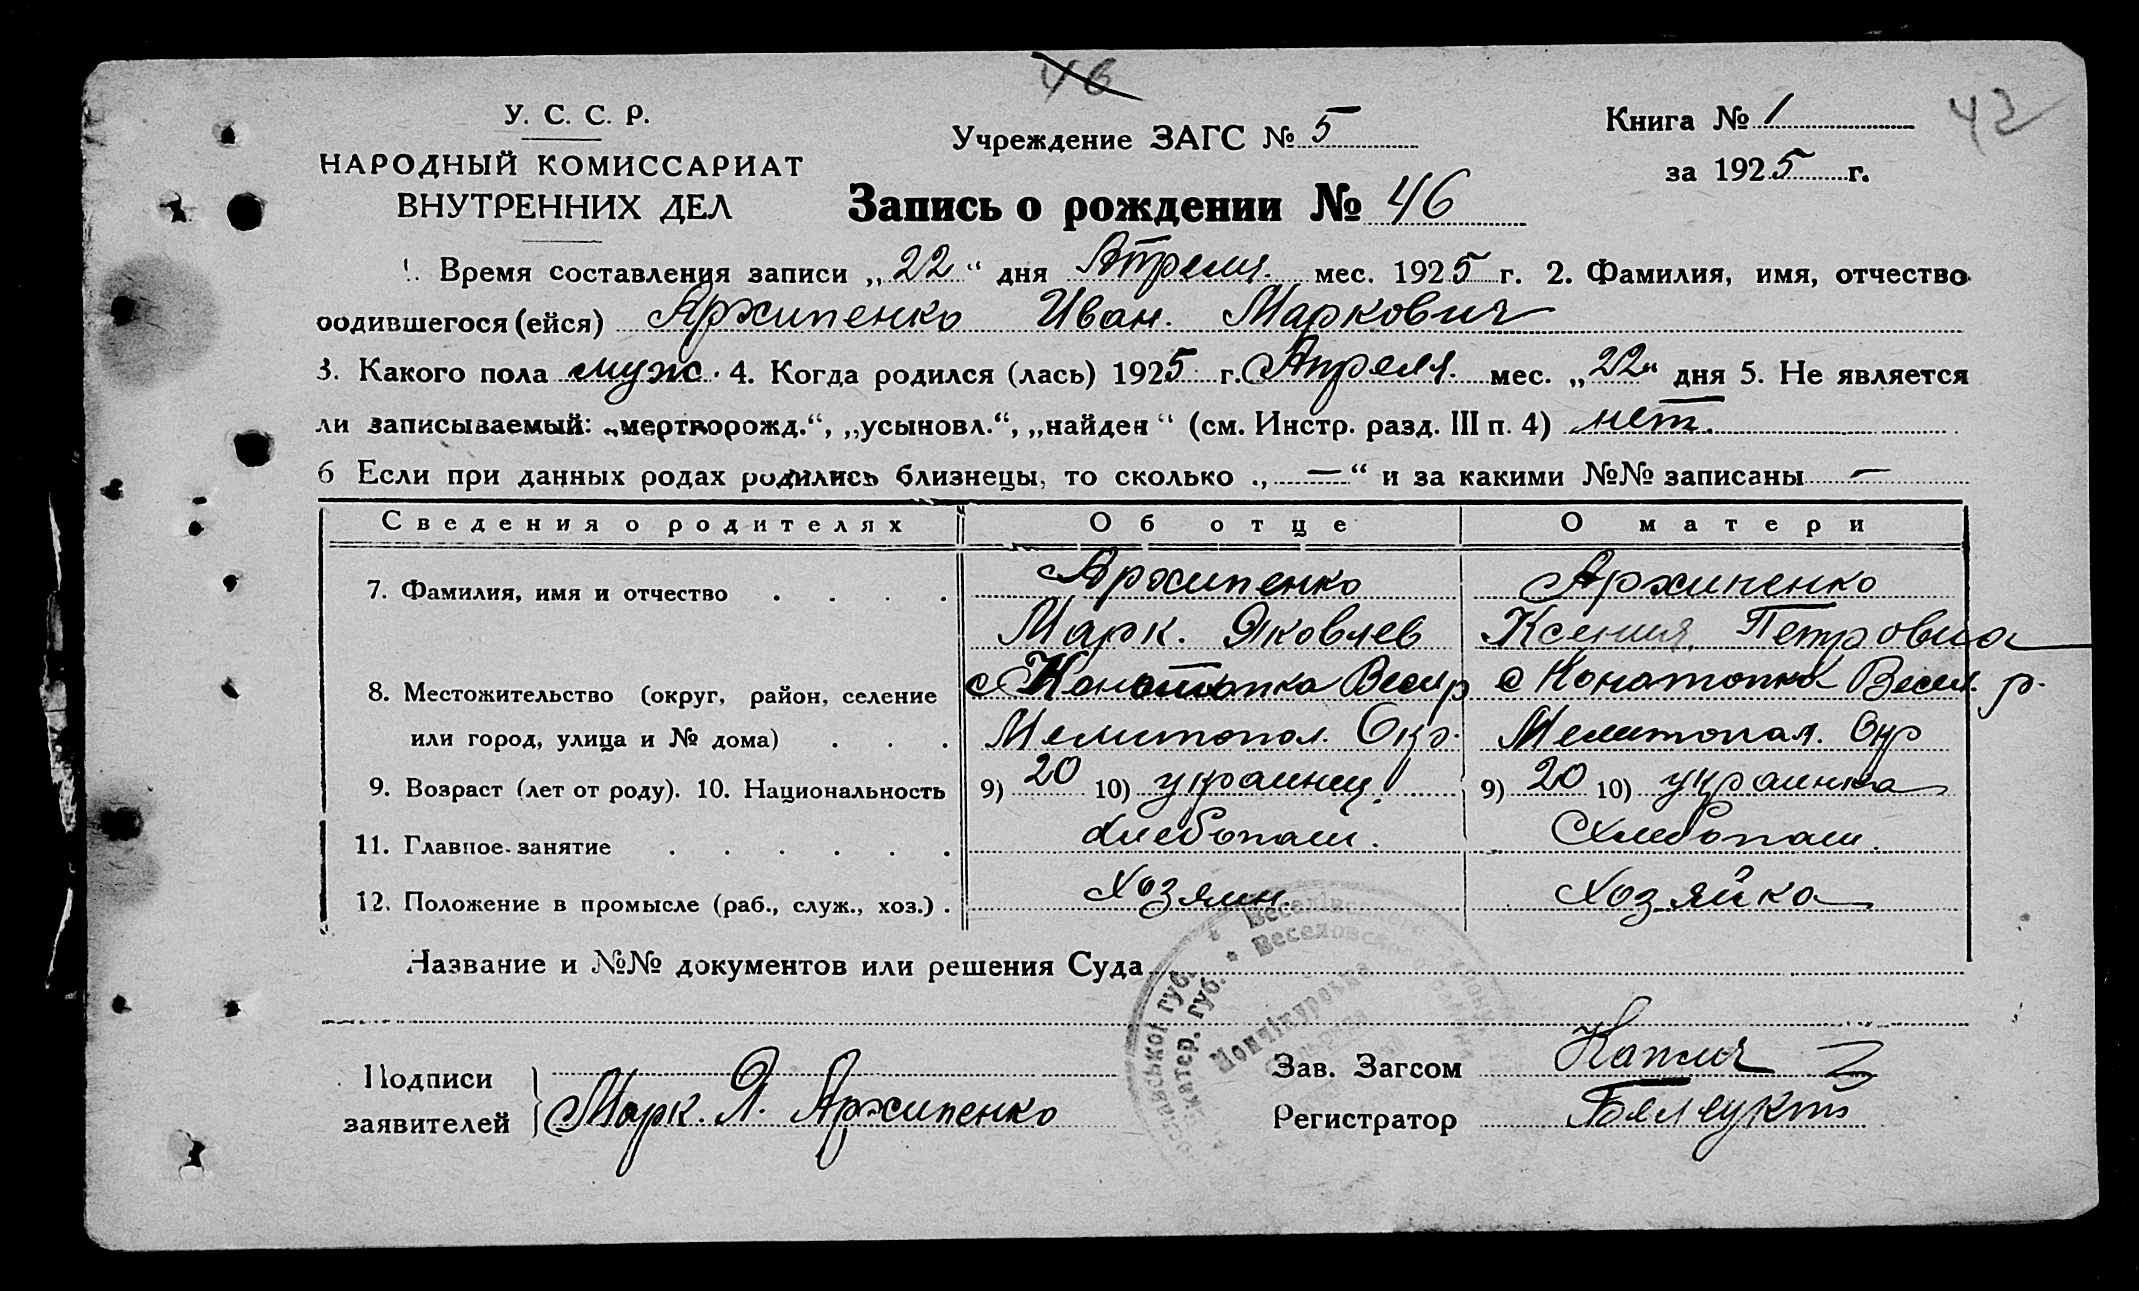 46
У. С. С. Р.
НАРОДНЫЙ КОМИССАРИАТ
ВНУТРЕННИХ ДЕЛ
Учреждение ЗАГС № 5
Книга № 1
42
за 1925 г.
Запись о рождении № 46
1. Время составления записи „22“ дня Апреля. мес. 1925 г. 2. Фамилия, имя, отчество
родившегося (ейся) Архипенко Иван. Маркович
3. Какого пола муж. 4. Когда родился (лась) 1925 г. Апреля. мес. „22“ дня 5. Не является
ли записываемый: „мертворожд.“, „усыновл.“, „найден“ (см. Инстр. разд. III п. 4) нет.
6 Если при данных родах родились близнецы, то сколько „—“ и за какими №№ записаны —
Сведения о родителях Об отце О матери
7. Фамилия, имя и отчество . . . . Архипенко Архипенко
Марк. Яковлев Ксения. Петровна
8. Местожительство (округ, район, селение с Конотопка Весел р с Конатопка Весел. р.
или город, улица и № дома) . . . Мелитопол. Окр. Мелитопал. Окр
9. Возраст (лет от роду). 10. Национальность 9) 20 10) украинец. 9) 20 10) украинка
11. Главное занятие . . . . . . Хлебопаш. Хлебопаш.
12. Положение в промысле (раб., служ., хоз.) . Хозяин. Хозяйка
Название и №№ документов или решения Суда
Подписи
заявителей Марк. Я. Архипенко
Зав. Загсом
Регистратор